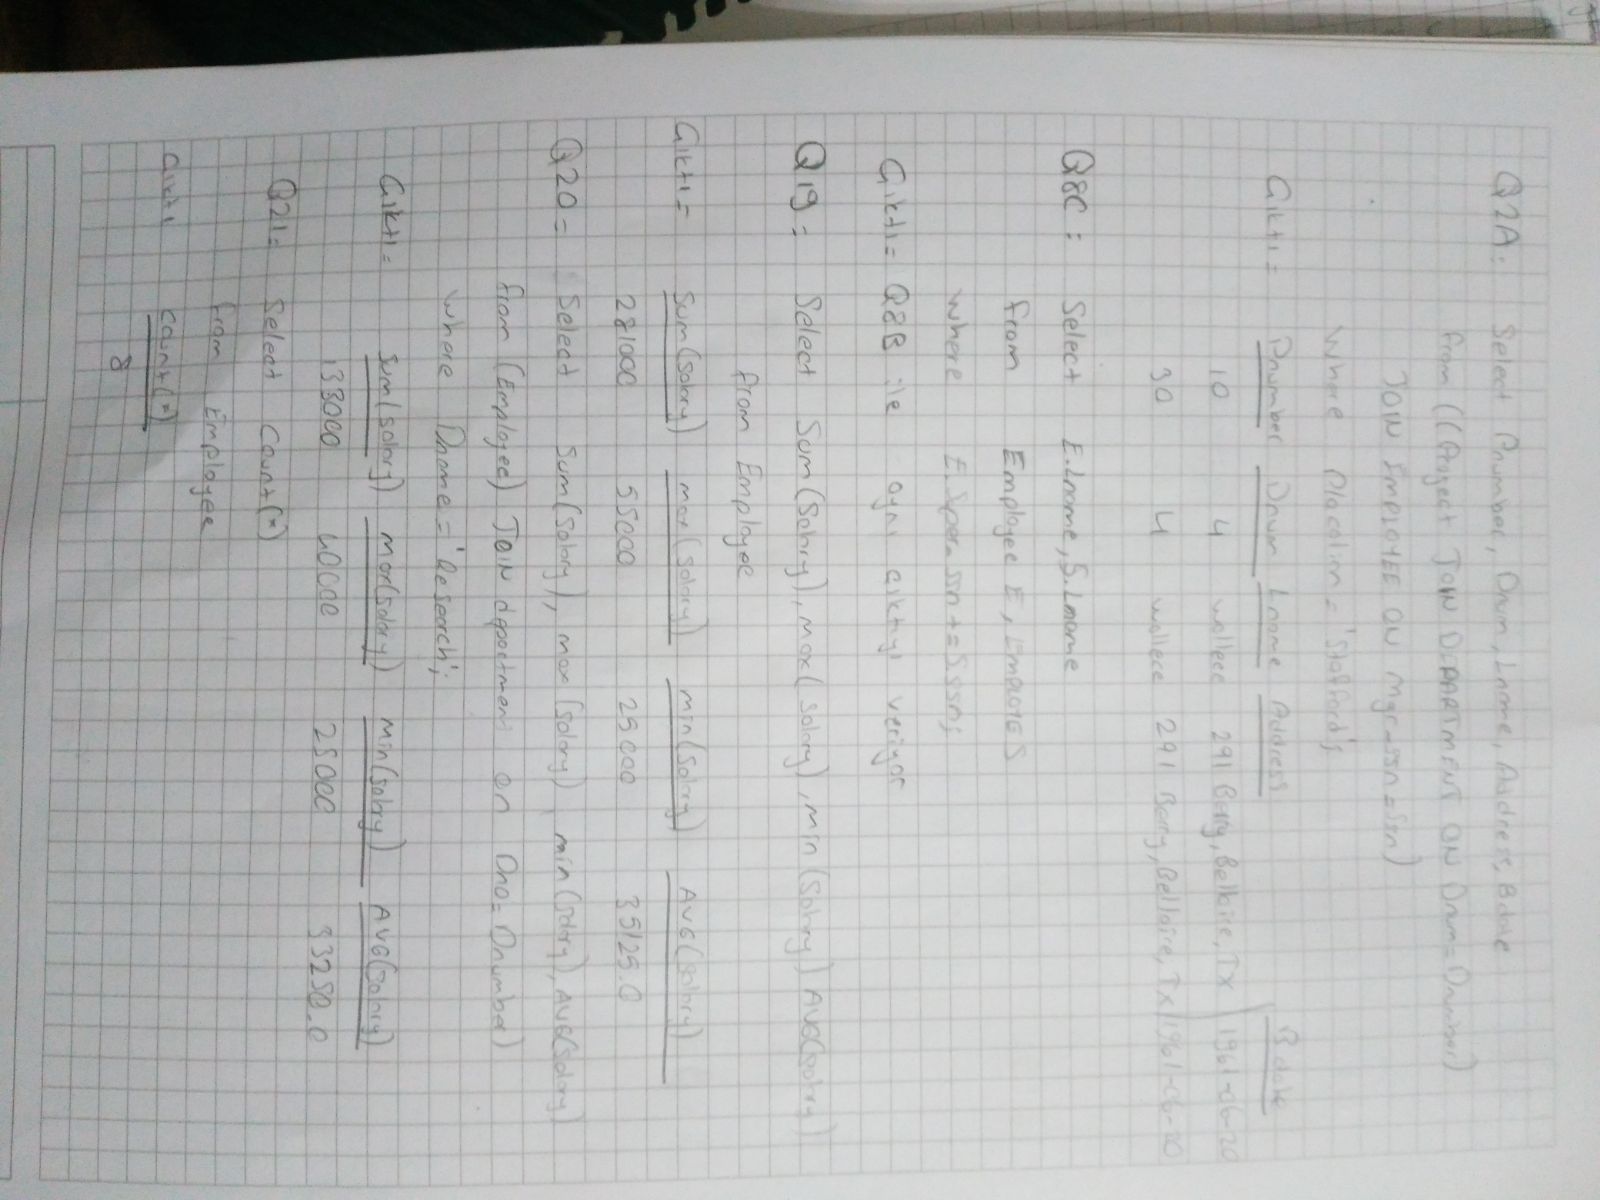 Q2A: Select Pnumber, Dnum, Lname, Address, Bdate
from ((Project JOIN DEPARTMENT ON Dnum=Dnumber)
JOIN EMPLOYEE ON mgr_ssn=ssn)
Where Plocation='Stafford';
Çıktı= Pnumber Dnum Lname Address Bdate
10 4 wallece 291 Berry, Bellaire, TX 1961-06-20
30 4 wallece 291 Berry, Bellaire, TX 1961-06-20
Q8C: Select E.Lname, S.Lname
from Employee E, EMPLOYEE S
where E.Super_ssn+=S.ssn;
Çıktı= Q8B ile aynı çıktıyı veriyor
Q19: Select Sum(Salary), max(salary), min(Salary) AVG(salary)
from Employee
Çıktı= Sum(Salary) max(salary) min(Salary) AVG(Salary)
281000 55000 25000 35125.0
Q20= Select Sum(Salary), max(salary), min(salary), AVG(Salary)
from (Employee) JOIN department on Dno=Dnumber)
where Dname='Research';
Çıktı= Sum(salary) max(salary) min(salary) AVG(Salary)
133000 40000 25000 33250.0
Q21= Select Count(*)
from Employee
Çıktı count(*)
8